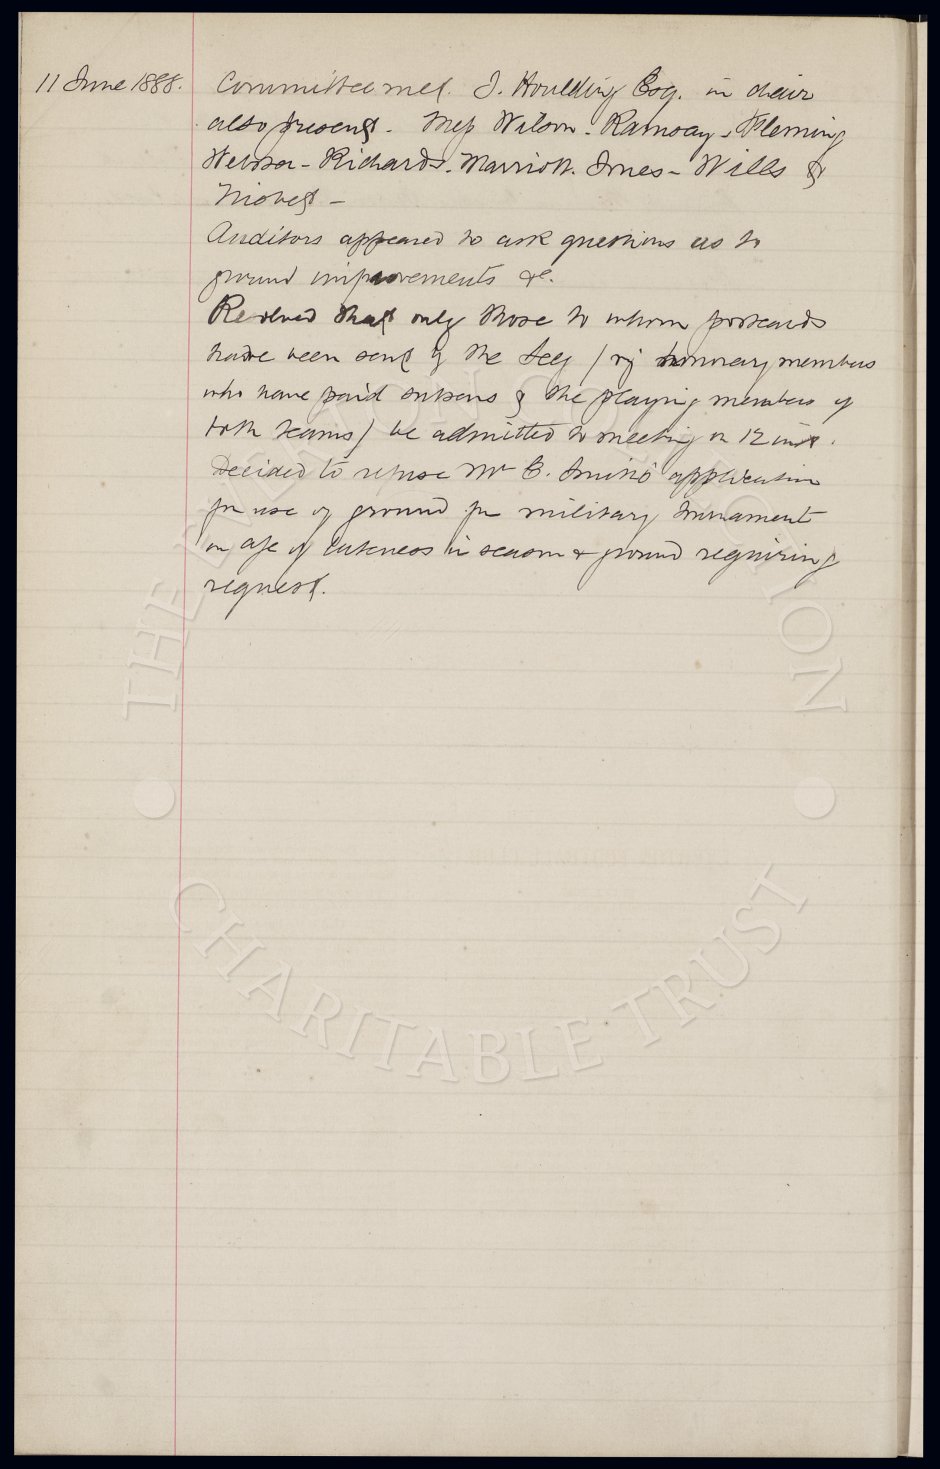 11 June 1888. Committee met. J. Houlding Esq. in chair
also present. Mess Wilson - Ramsay - Fleming
Webster - Richards - Marriott. Jones - Wills &
Auditors appeared to ask questions as to
ground improvements &c.
Resolved that only those to whom postcards
have been sent by the Secy / viz honorary members
who have paid subscns & the playing members of
both teams) be admitted to meeting on 12 inst.
Decided to refuse Mr B. application
for use of ground for military tournament
on a/c of lateness in season & ground requiring
request.
THE EVERTON COLLECTION
CHARITABLE TRUST